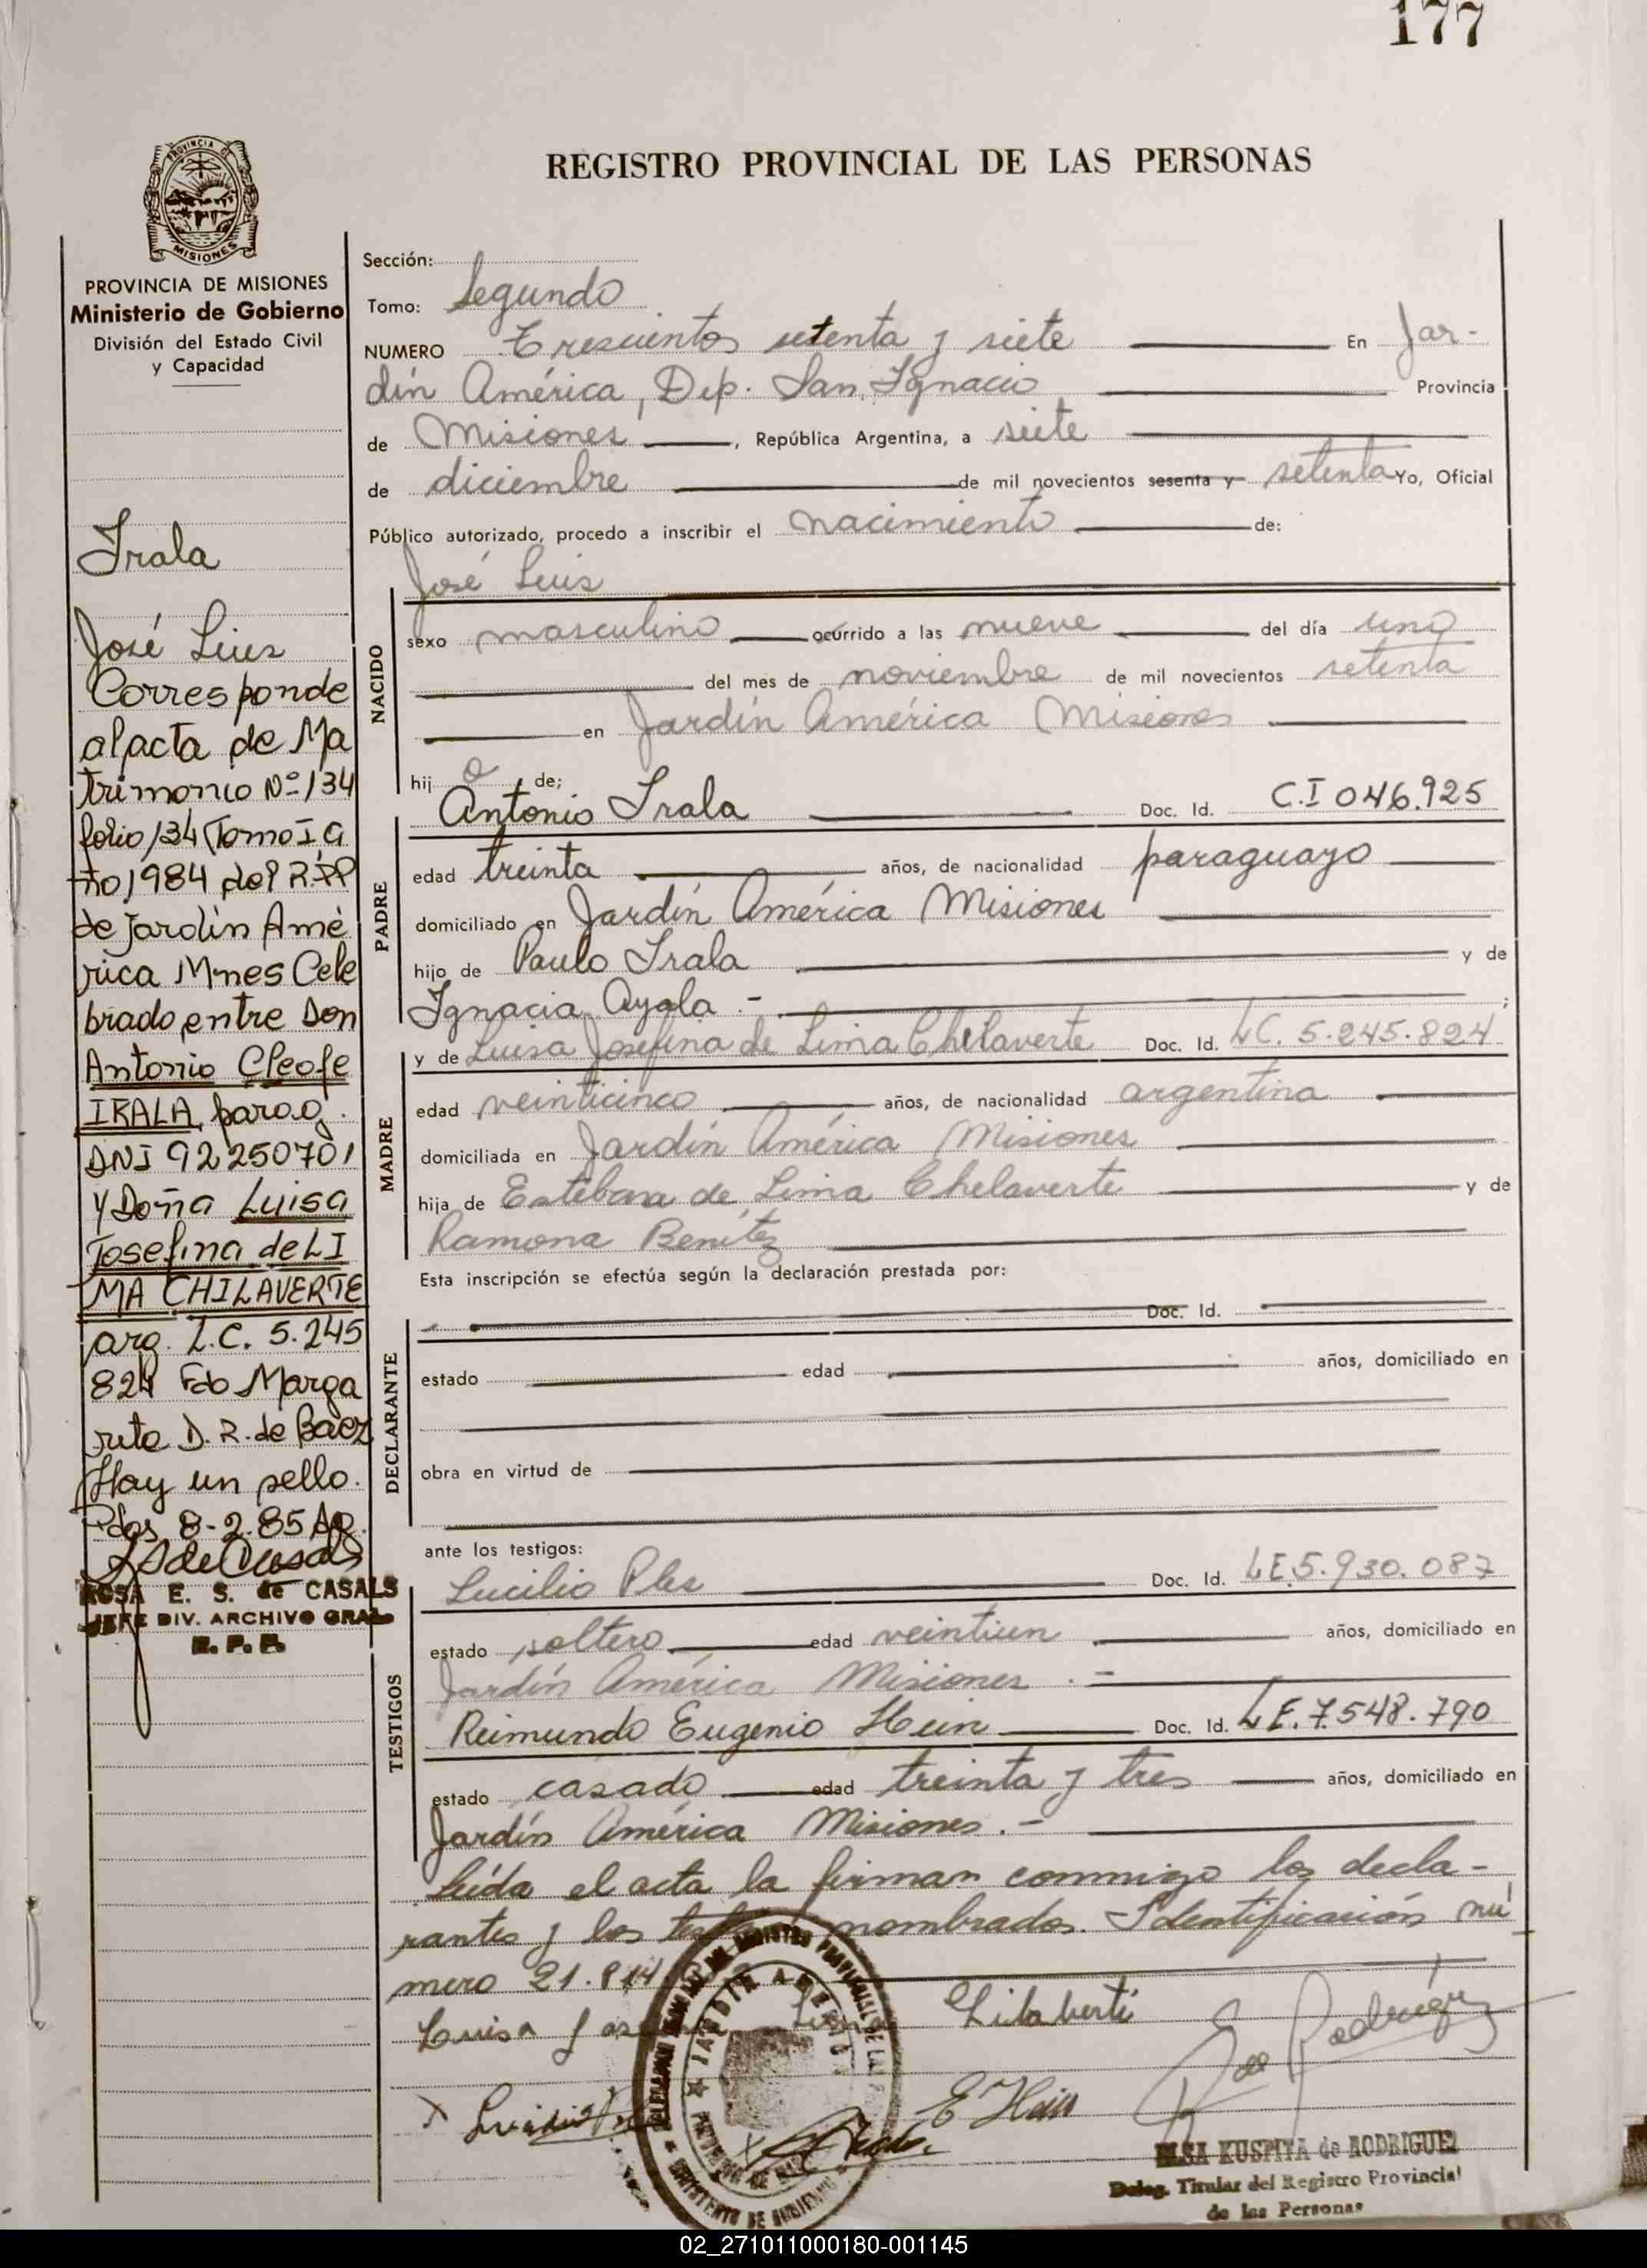 177
REGISTRO PROVINCIAL DE LAS PERSONAS
PROVINCIA DE MISIONES
Ministerio de Gobierno
División del Estado Civil
y Capacidad
Irala
José Luis
Corresponde
al acta de Ma
trimonio Nº 134
folio 134 Tomo I a
ño 1984 del R.PP
de Jardín Amé
rica Mnes Cele
brado entre Don
Antonio Cleofe
IRALA parag.
DNI 92250701
y Doña Luisa
Josefina de LI
MA CHILAVERTE
arg. L.C. 5.245
824 Fdo Marga
rita D. R. de Baez
Hay un sello.
Pdas 8-2.85
ROSA E. S. de CASALS
JEFE DIV. ARCHIVO GRAL
R. P. P.
Sección:
Tomo: Segundo
NUMERO Trescientos setenta y siete En Jar-
dín América, Dep. San Ignacio Provincia
de Misiones, República Argentina, a siete
de diciembre de mil novecientos sesenta y setenta Yo, Oficial
Público autorizado, procedo a inscribir el nacimiento de:
José Luis
NACIDO
sexo masculino ocurrido a las nueve del día uno
del mes de noviembre de mil novecientos setenta
en Jardín América Misiones
hijo de;
PADRE
Antonio Irala Doc. Id. C.I 046.925
edad treinta años, de nacionalidad paraguayo
domiciliado en Jardín América Misiones
hijo de Paulo Irala y de
Ignacia Ayala.-;
MADRE
y de Luisa Josefina de Lima Chelaverte Doc. Id. LC. 5.245.824
edad veinticinco años, de nacionalidad argentina
domiciliada en Jardín América Misiones
hija de Esteban de Lima Chelaverte y de
Ramona Benítez
Esta inscripción se efectúa según la declaración prestada por:
DECLARANTE
Doc. Id.
estado edad años, domiciliado en
obra en virtud de
ante los testigos:
TESTIGOS
Lucilio Ples Doc. Id. LE.5.930.087
estado soltero edad veintiun años, domiciliado en
Jardín América Misiones.-
Reimundo Eugenio Hein Doc. Id. LE.7.548.790
estado casado edad treinta y tres años, domiciliado en
Jardín América Misiones.-
Leída el acta la firman conmigo los decla-
rantes y los nombrados. Identificación nú
mero 21.814
Luisa Lima Chilaberti
E Hein
ELSA KUSPITA de RODRIGUEZ
Deleg. Titular del Registro Provincial
de las Personas
02_271011000180-001145